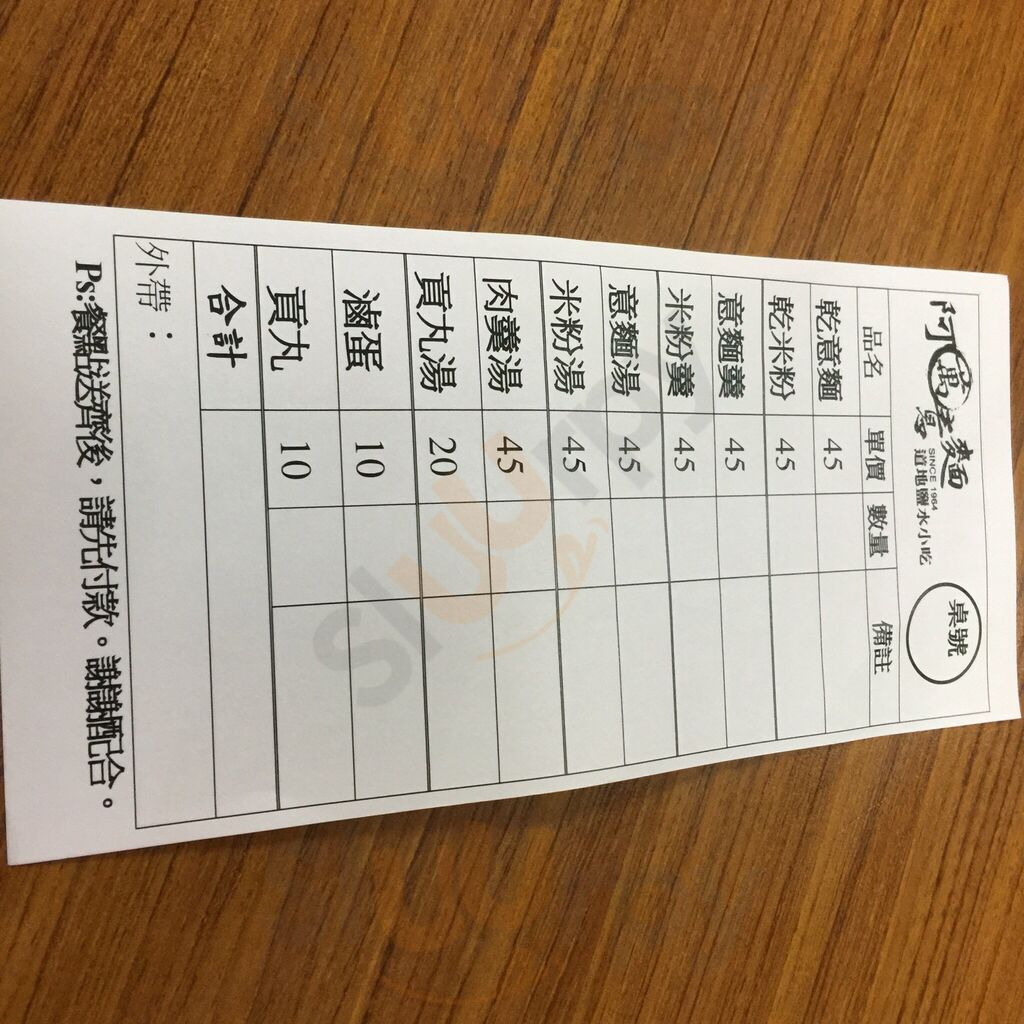 阿萬意麵
SINCE 1964
道地鹽水小吃
桌號
品名 單價 數量 備註
乾意麵 45
乾米粉 45
意麵羹 45
米粉羹 45
意麵湯 45
米粉湯 45
肉羹湯 45
貢丸湯 20
滷蛋 10
貢丸 10
合計
外帶：
Ps:餐點送齊後，請先付款。謝謝配合。
slurpy